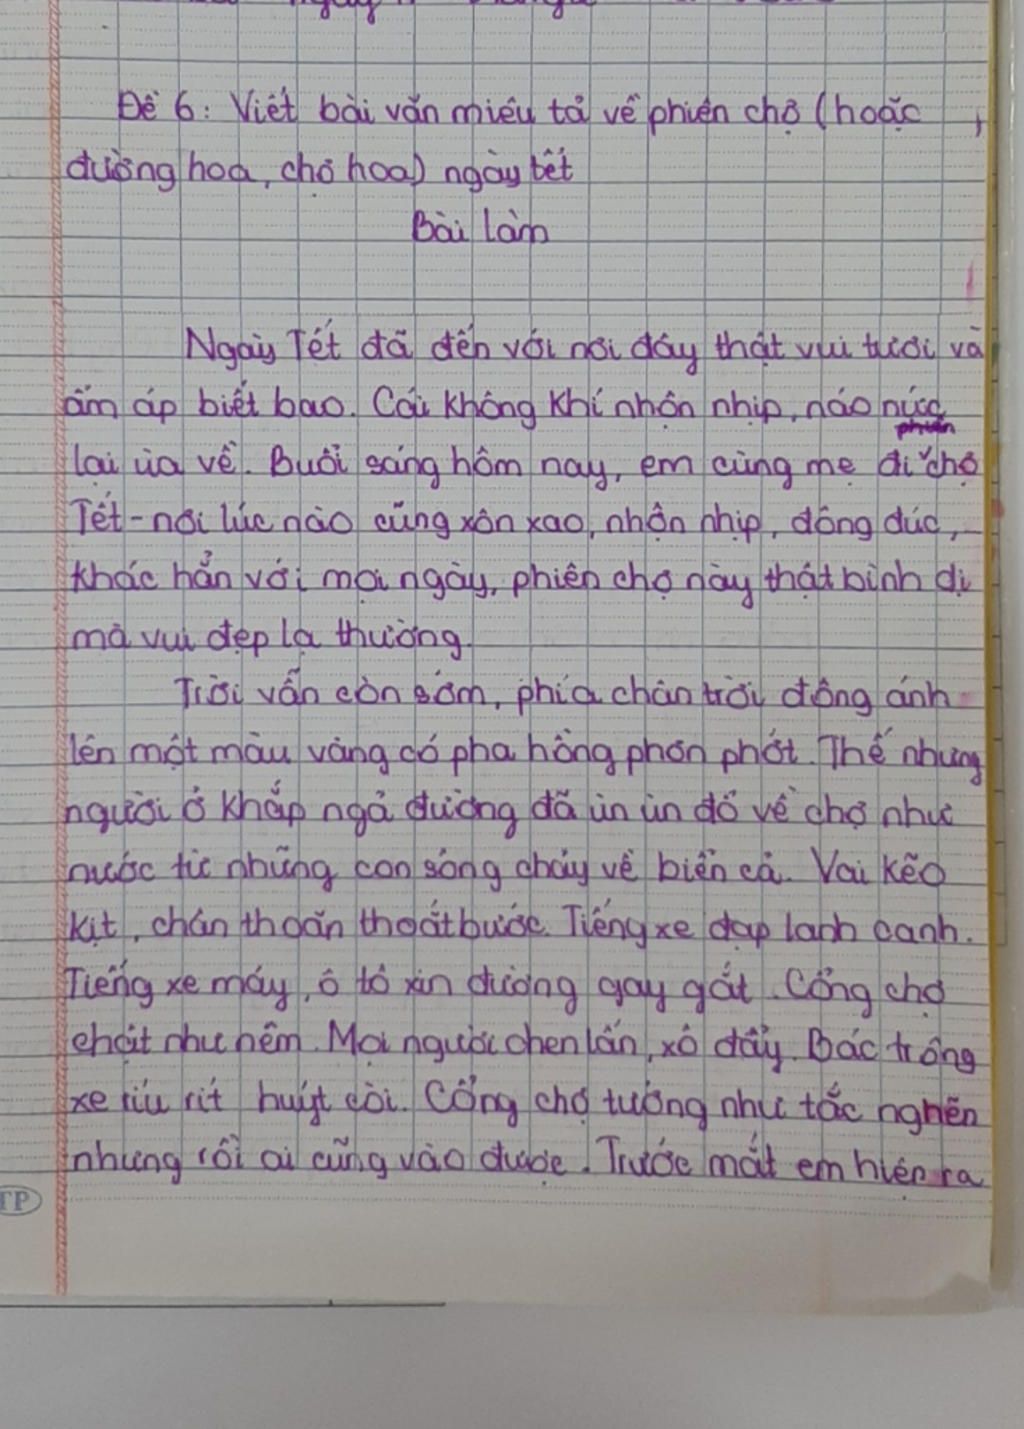 Đề 6: Viết bài văn miêu tả về phiên chợ (hoặc
đường hoa, chợ hoa) ngày tết
Bài làm
Ngày Tết đã đến với nơi đây thật vui tươi và
ấm áp biết bao. Cái không khí nhộn nhịp, náo nức
phiên
lại ùa về. Buổi sáng hôm nay, em cùng mẹ đi ˅chợ
Tết - nơi lúc nào cũng xôn xao, nhộn nhịp, đông đúc,
khác hẳn với mọi ngày, phiên chợ này thật bình dị
mà vui đẹp lạ thường.
Trời vẫn còn sớm, phía chân trời đông ánh
lên một màu vàng có pha hồng phơn phớt. Thế nhưng
người ở khắp ngả đường đã ùn ùn đổ về chợ như
nước từ những con sông chảy về biển cả. Vai kẽo
kịt, chân thoăn thoắt bước. Tiếng xe đạp lanh canh.
Tiếng xe máy, ô tô xin đường gay gắt. Cổng chợ
chật như nêm. Mọi người chen lấn, xô đẩy. Bác trông
xe ríu rít huýt còi. Cổng chợ tưởng như tắc nghẽn
nhưng rồi ai cũng vào được. Trước mắt em hiện ra
TP